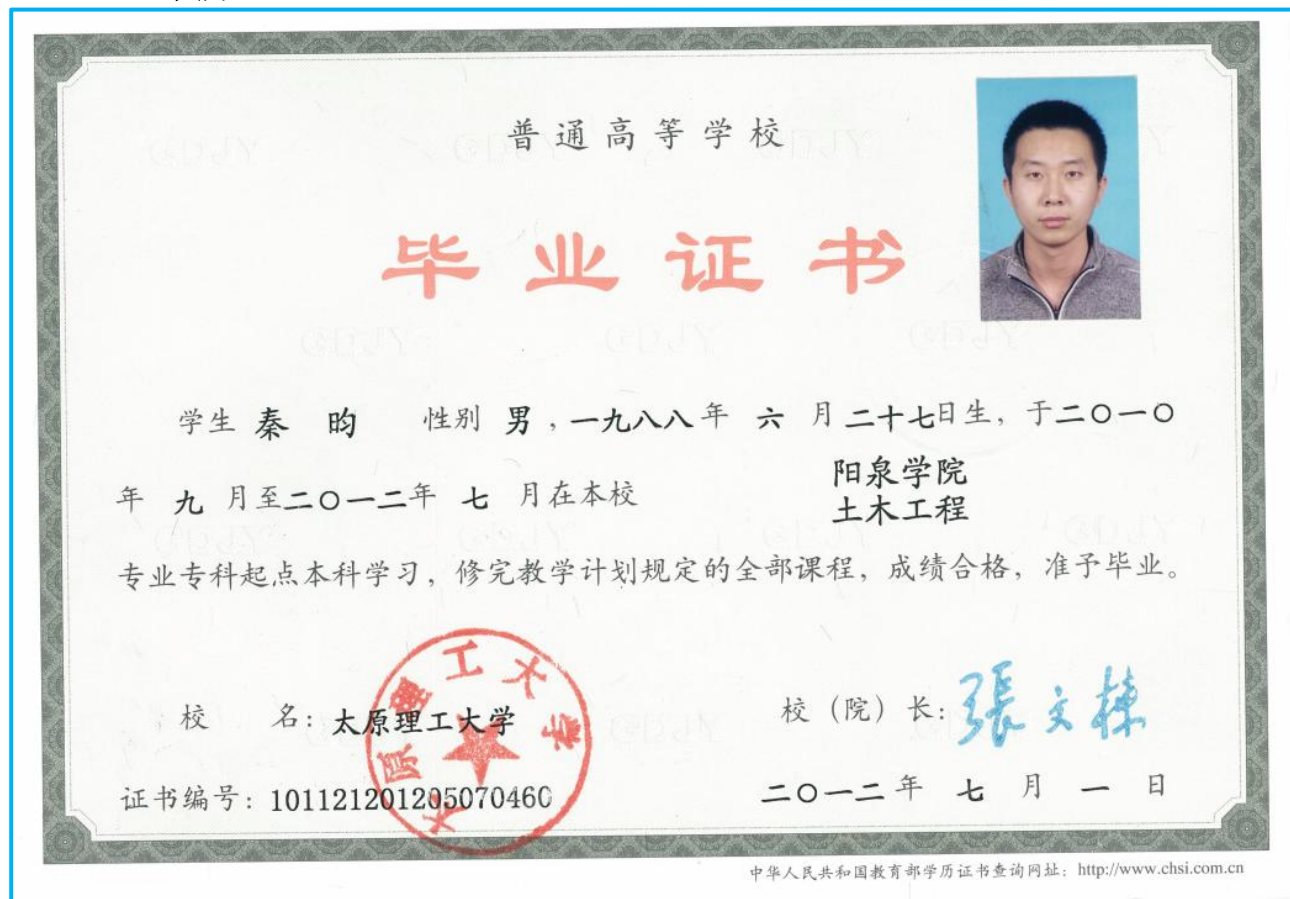 普通高等学校
毕业证书
学生 秦 昀 性别 男，一九八八年 六 月二十七日生，于二〇一〇
年 九 月至二〇一二年 七 月在本校 阳泉学院 土木工程
专业专科起点本科学习，修完教学计划规定的全部课程，成绩合格，准予毕业。
校 名：太原理工大学
太原理工大学
校（院）长：張文棟
证书编号：101121201205070460
二〇一二年 七 月 一 日
中华人民共和国教育部学历证书查询网址：http://www.chsi.com.cn